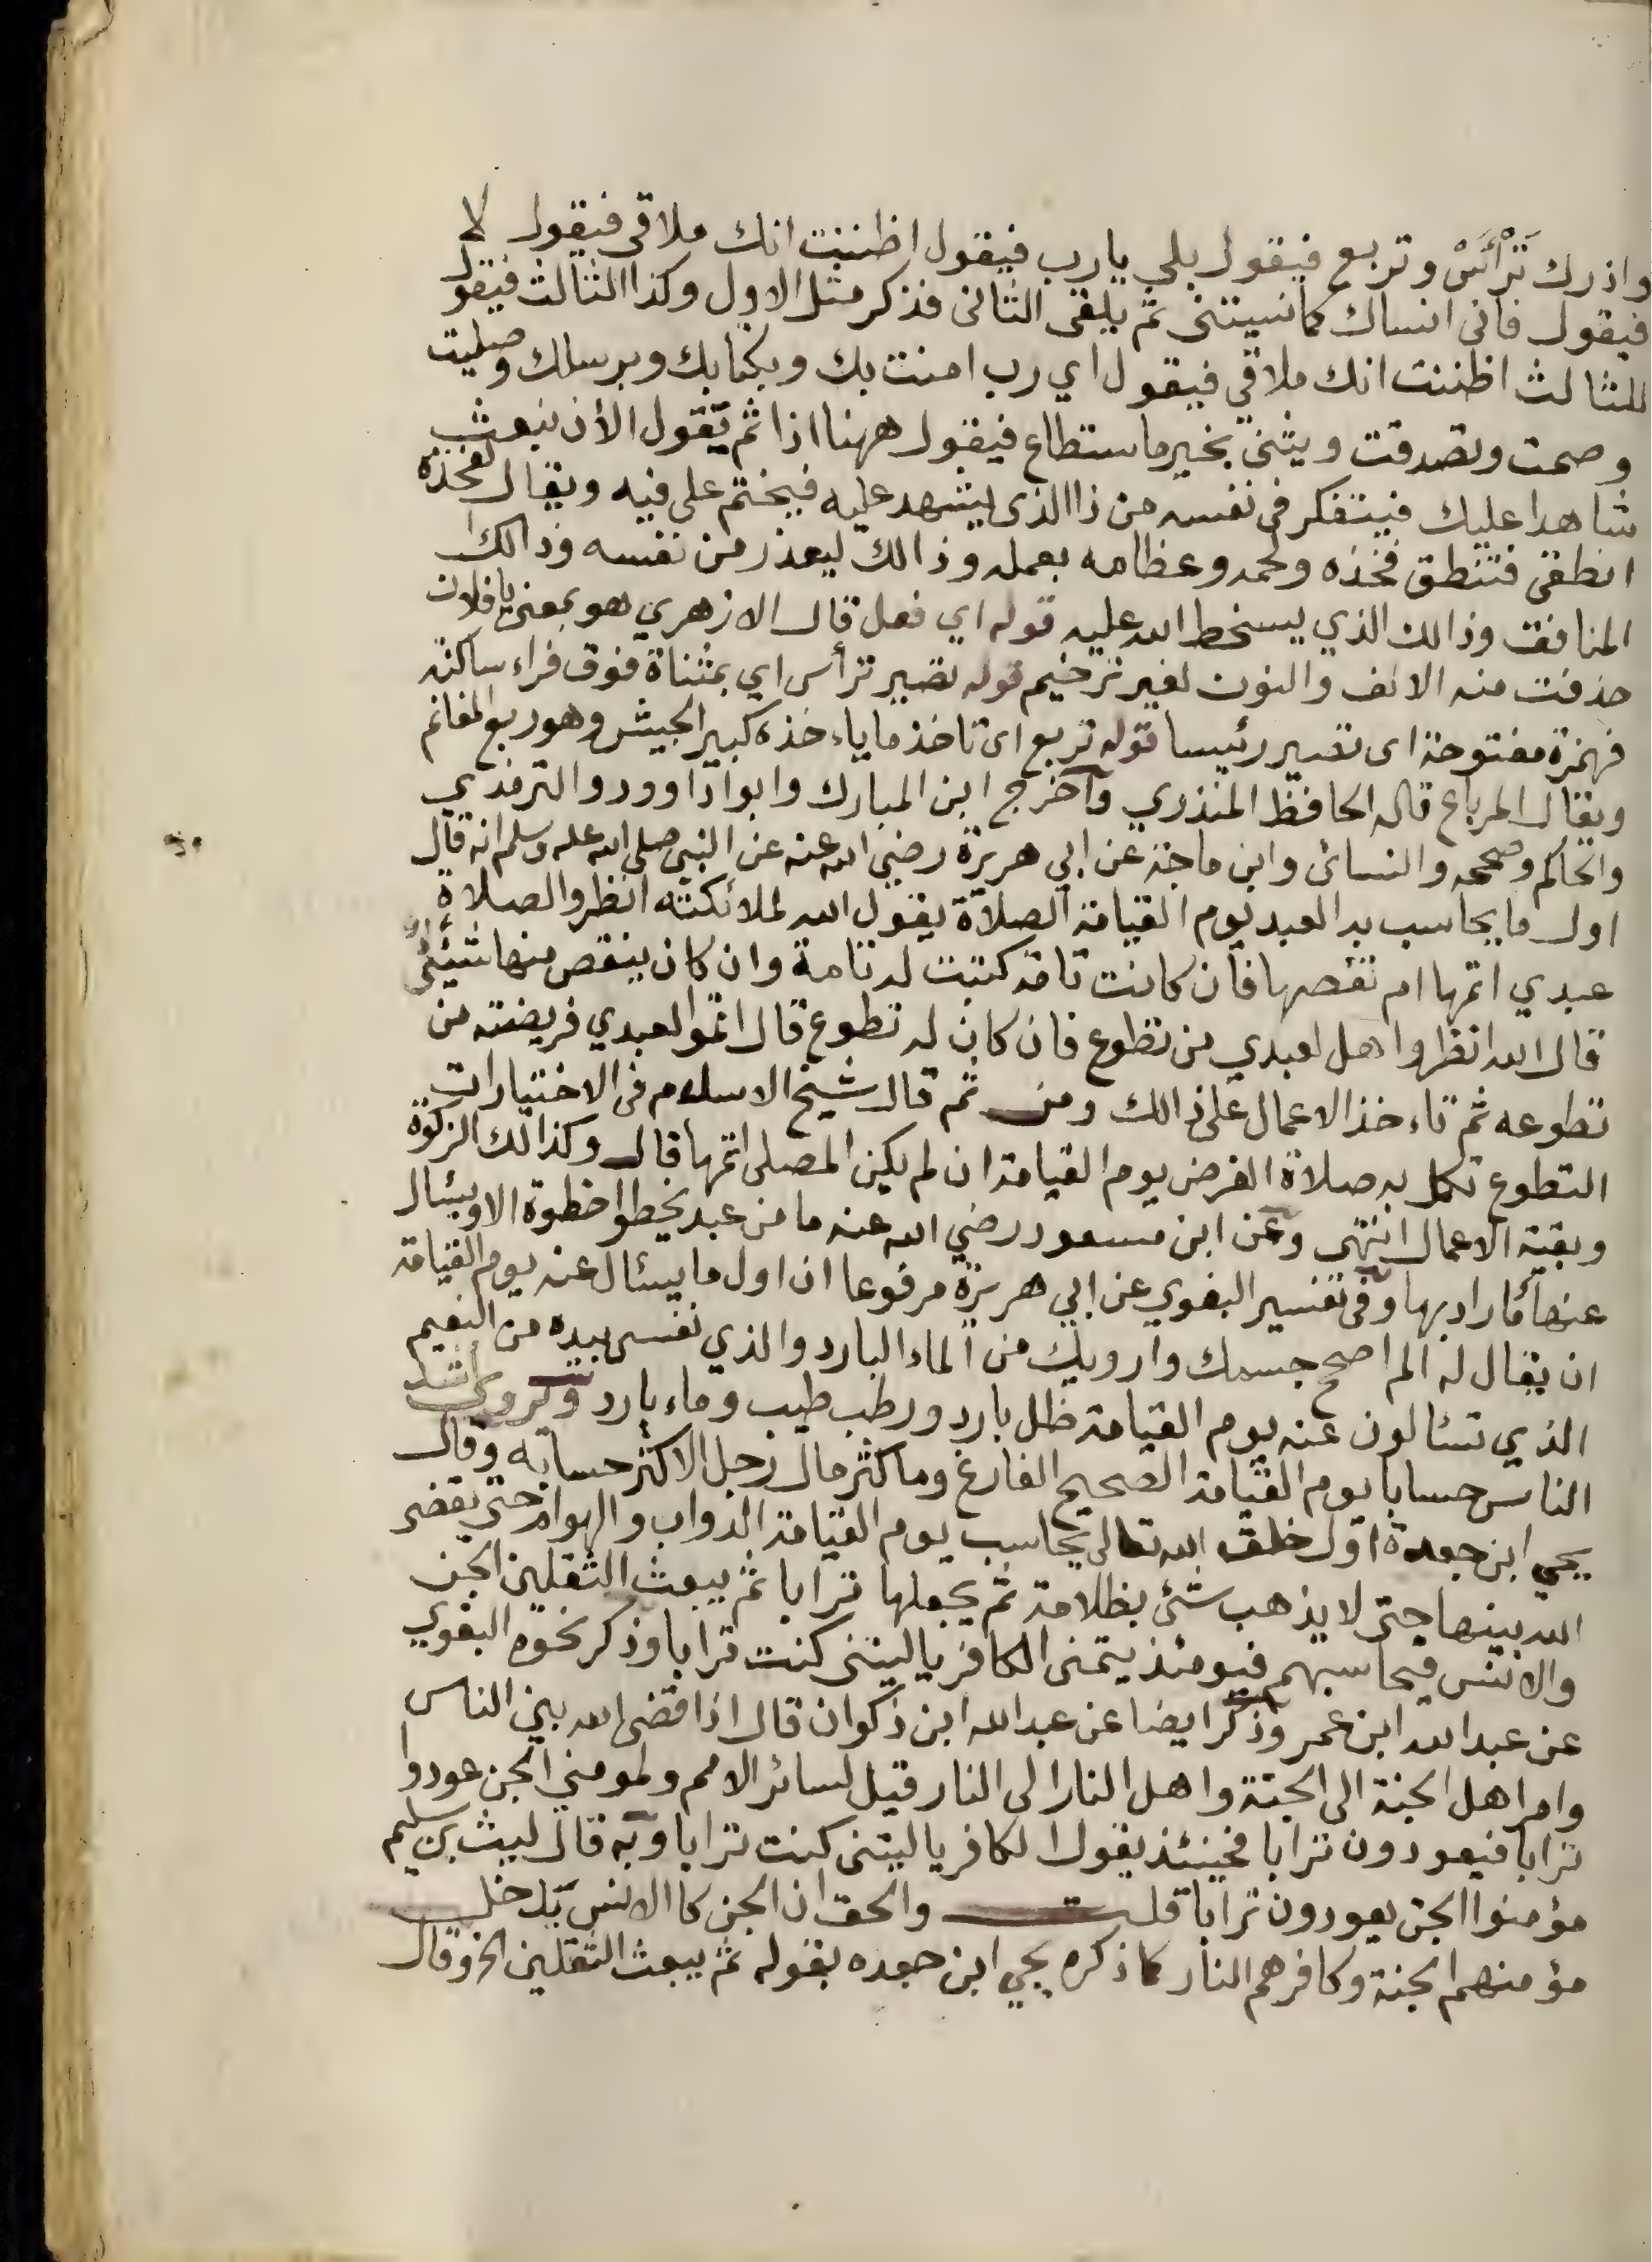 واذرك تَرْأَسْ وتربع فيقول بلي يارب فيقول اظننت انك ملاقي فيقول لا
فيقول فاني انساك كمانسيتني ثم يلقي الثاني فذكر مثل الاول وكذا الثالث فيقول
للثالث اظننت انك ملاقي فيقول اي رب امنت بك وبكتابك وبرسلك وصليت
وصمت وتصدقت ويثني بخير ماستطاع فيقول ههنا اذا ثم يقول الأن نبعث
شاهدا عليك فيتفكر في نفسه من ذا الذي يشهد عليه فيختم على فيه ويقال لفخذه
انطقي فتنطق فخذه ولحمه وعظامه بعمله وذالك ليعذر من نفسه وذالك
المنافق وذالك الذي يسخط الله عليه قوله اي فعل قال الازهري هو بمعني يافلان
حذفت منه الالف والنون لغير ترخيم قوله تصير ترأس اي بمثناة فوق فراء ساكنه
فهمزة مفتوحة اى تصير رئيسا قوله تربع اى تاخذ ماياءخذه كبير الجيش وهو ربع المغانم
ويقال المرباع قاله الحافظ المنذري وآخرج ابن المبارك وابوا داوود والترمذي
والحاكم وصححه والنسائ وابن ماجة عن ابي هريرة رضي الله عنه عن النبي صلى الله عله وسلم انه قال
اول ما يحاسب به العبد يوم القيامة الصلاة يقول الله لملائكته انظروا الصلاة
عبدي اتمها ام نقصها فان كانت تامه كتبت له تامة وان كان ينقص منها شيئى
قال الله انظروا هل لعبدي من تطوع فان كان له تطوع قال اتموا لعبدي فريضته من
تطوعه ثم تاءخذ الاعمال على ذالك ومن ثم قال شيخ الاسلام فى الاختيارات
التطوع تكمل به صلاة الفرض يوم القيامة ان لم يكن المصلى اتمها قال وكذالك الزكوة
وبقية الاعمال انتهى وعن ابن مسعود رضي الله عنه ما من عبد يخطوا خطوة الا ويسئال
عنها ما اراد بها وفى تفسير البغوي عن ابي هريرة مرفوعا ان اول ما يسئال عنه يوم القيامة
ان يقال له الم اصح جسمك وارويك من الماء البارد والذي نفسى بيده من النعيم
الذي تسئالون عنه يوم القيامة ظل بارد ورطب طيب وماء بارد وكروى اشد
الناس حسابا يوم القيامة الصحيح الفارغ وماكثر مال رجل الا كثر حسابه وقال
يحيي ابن جعدة اول خلق الله تعالى يحاسب يوم القيامة الدواب والهوام حتى يقضى
الله بينها حتى لا يذهب شئ بظلامة ثم يجعلها ترابا ثم يبعث الثقلين الجن
والانس فيحاسبهم فيومئذ يتمنى الكافر ياليتنى كنت ترابا وذكر نحوه البغوي
عن عبد الله ابن عمر وذكر ايضا عن عبد الله ابن ذكوان قال اذا قضى الله بين الناس
وامر اهل الجنة الى الجنة واهل النار الى النار قيل لسائر الامم ولمومني الجن عودوا
ترابا فيعودون ترابا فحينئذ يقول الكافر ياليتنى كنت ترابا وبه قال ليث بن سليم
مؤمنوا الجن يعودون ترابا قلت والحق ان الجن كا الانس يدخل
مؤمنهم الجنة وكافرهم النار كما ذكره يحي ابن جعده بقوله ثم يبعث الثقلين الخ وقال